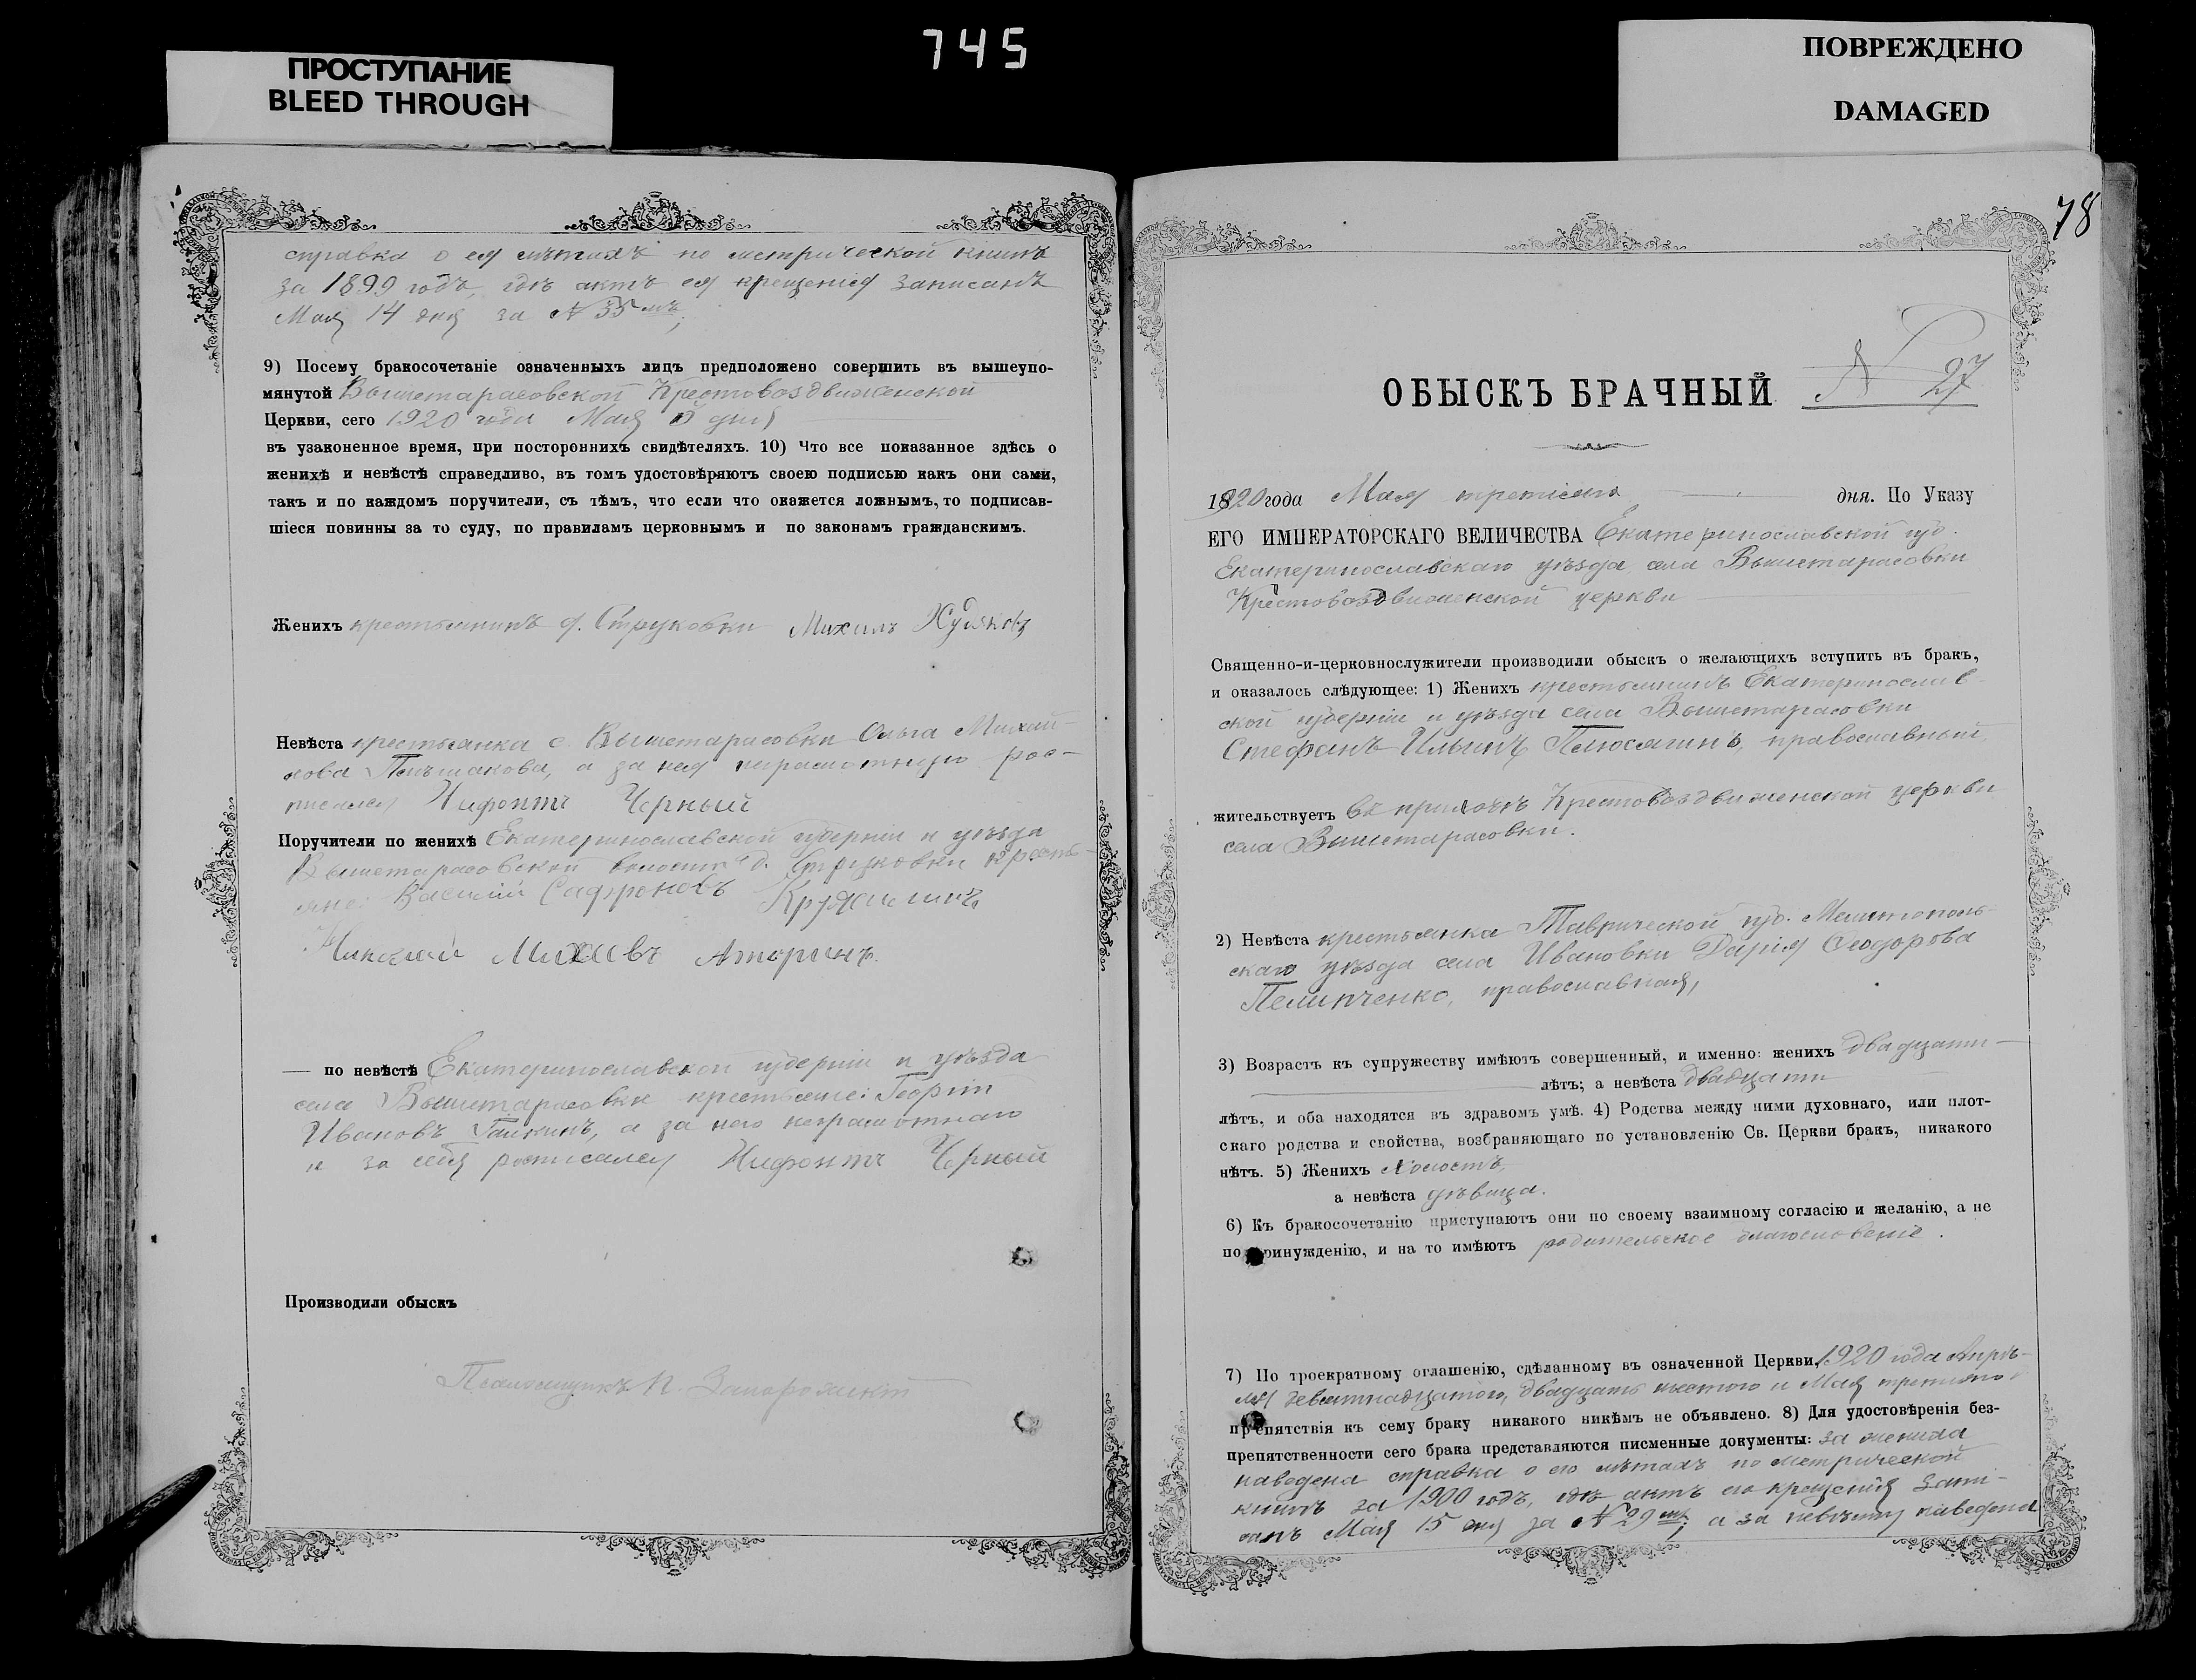 745
ПРОСТУПАНИЕ
BLEED THROUGH
ПОВРЕЖДЕНО
DAMAGED
справка о ея лѣтахъ по метрической книгѣ
за 1899 годъ, гдѣ актъ ея крещенія записанъ
Мая 14 дня за № 35 мъ;
9) Посему бракосочетаніе означенныхъ лицъ предположено совершить въ вышеупо-
мянутой Вышетарасовской Крестовоздвиженской
Церкви, сего 1920 года Мая 3 дня
въ узаконенное время, при постороннихъ свидѣтеляхъ. 10) Что все показанное здѣсь о
женихѣ и невѣстѣ справедливо, въ томъ удостовѣряютъ своею подписью какъ они сами,
такъ и по каждомъ поручители, съ тѣмъ, что если что окажется ложнымъ, то подписав-
шіеся повинны за то суду, по правиламъ церковнымъ и по законамъ гражданскимъ.
Женихъ крестьянинъ д. Струковки Михаилъ Худяковъ
Невѣста крестьянка с. Вышетарасовки Ольга Михай-
лова а за нея неграмотную рос-
писался Нифонтъ Черный
Поручители по женихѣ Екатеринославской губерніи и уѣзда
Вышетарасовской волости д. Струковки кресть-
яне: Василій Сафроновъ
Николай Михеевъ
— по невѣстѣ Екатеринославской губерніи и уѣзда
села Вышетарасовки крестьяне: Георгій
Ивановъ Галкинъ, а за него неграмотнаго
и за себя росписался Нифонтъ Черный
Производили обыскъ
Псаломщикъ П. Запорожскій
78
ОБЫСКЪ БРАЧНЫЙ № 27
1920 года Мая третьяго дня. По Указу
ЕГО ИМПЕРАТОРСКАГО ВЕЛИЧЕСТВА Екатеринославской губ.
Екатеринославскаго уѣзда села Вышетарасовки
Крестовоздвиженской церкви
Священно-и-церковнослужители производили обыскъ о желающихъ вступить въ бракъ,
и оказалось слѣдующее: 1) Женихъ крестьянинъ Екатеринослав-
ской губерніи и уѣзда села Вышетарасовки
Стефанъ Ильинъ православный
жительствуетъ въ приходѣ Крестовоздвиженской церкви
села Вышетарасовки.
2) Невѣста крестьянка Таврической губ. Мелитополь-
скаго уѣзда села Ивановки Дарія Ѳеодорова
Пелипченко, православная,
3) Возрастъ къ супружеству имѣютъ совершенный, и именно: женихъ двадцати
лѣтъ; а невѣста двадцати
лѣтъ, и оба находятся въ здравомъ умѣ. 4) Родства между ними духовнаго, или плот-
скаго родства и свойства, возбраняющаго по установленію Св. Церкви бракъ, никакого
нѣтъ. 5) Женихъ холостъ,
а невѣста дѣвица.
6) Къ бракосочетанію приступаютъ они по своему взаимному согласію и желанію, а не
по принужденію, и на то имѣютъ родительское благословеніе.
7) По троекратному оглашенію, сдѣланному въ означенной Церкви 1920 года Апрѣ-
ля девятнадцатого, двадцать шестого и Мая третьяго
препятствія къ сему браку никакого никѣмъ не объявлено. 8) Для удостовѣренія без-
препятственности сего брака представляются писменные документы: за жениха
наведена справка о его лѣтахъ по метрической
книгѣ за 1900 годъ, гдѣ актъ его крещенія запи-
санъ Мая 15 дня за № 29 мъ; а за невѣсту наведена